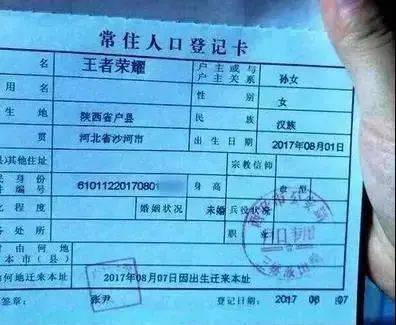 常住人口登记卡
名 王者荣耀 户主或与户主关系 孙女
用名 性别 女
生地 陕西省户县 民族 汉族
贯 河北省沙河市 出生日期 2017年08月01日
县)其他住址 宗教信仰
件编号 61011220170801 身高 血型
化程度 婚姻状况 未婚 兵役状况
务处所
由何地
本市(县)
何地迁来本址 2017年08月07日因出生迁来本址
签章: 张尹 登记日期: 2017 08 07